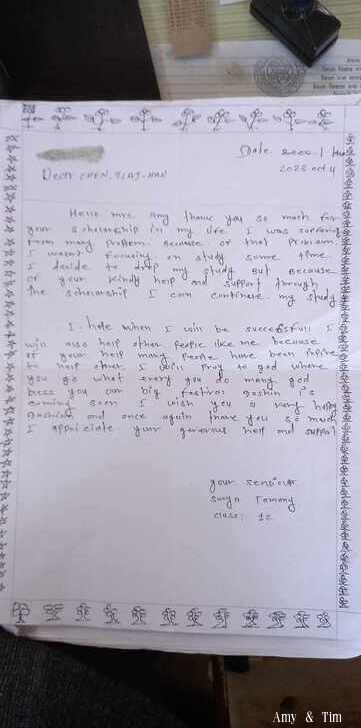 Date 2080 / 
2023 oct 4
Dear CHEN,
Hello mrs. Amy thank you so much for
your scholarship in my life. I was suffering
from many problem. Because of that problem.
I wasn't focusing on study some time.
I decide to drop my study But Because
of your kindy help and support through
the scholarship I can continue my study
I hope when I will be successfull I
will also help other people like me because
of your help many people have been inspire
to help other I will pray to god where
you go what every you do many god
bless you our big festival dashin is
coming soon I wish you a very happy
dashin and once again thank you so much
I appriciate your generous help and support
your
Surya Tamang
class: 12
Amy & Tim